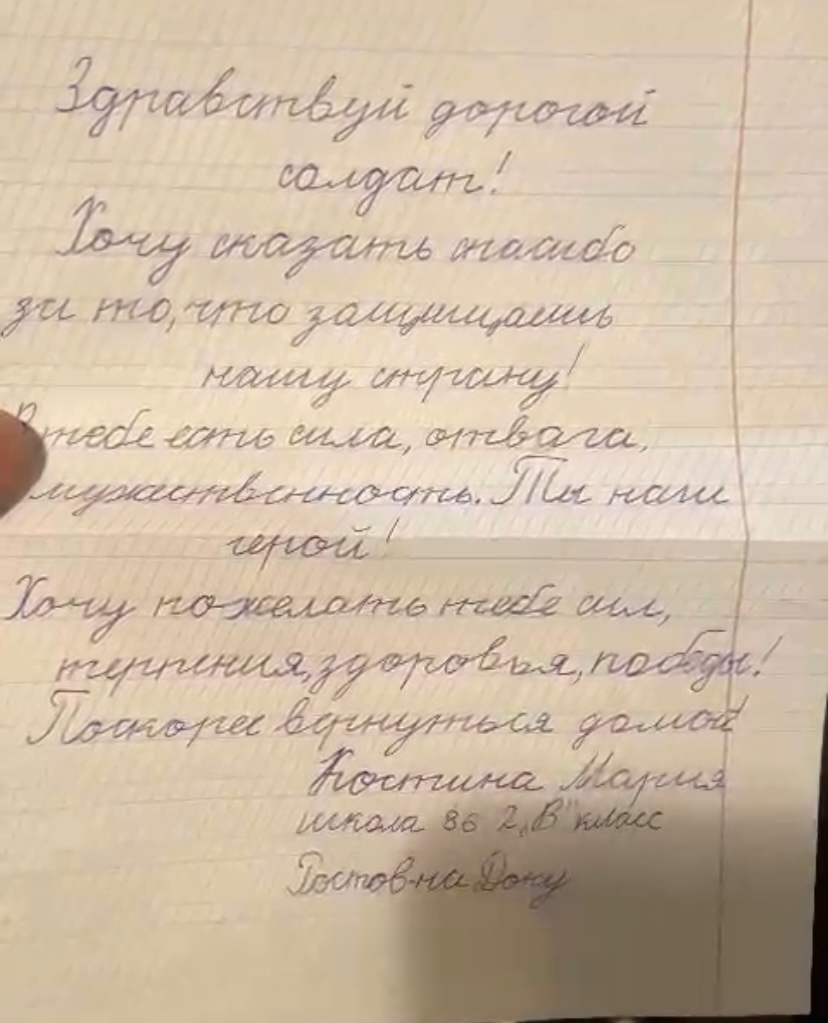 Здравствуй дорогой
солдат!
Хочу сказать спасибо
за то, что защищаешь
нашу страну!
В тебе есть сила, отвага,
мужественность. Ты наш
герой!
Хочу пожелать тебе сил,
терпения, здоровья, победы!
Поскорее вернуться домой!
Костина Мария
школа 86 2 „В" класс
Ростов-на Дону